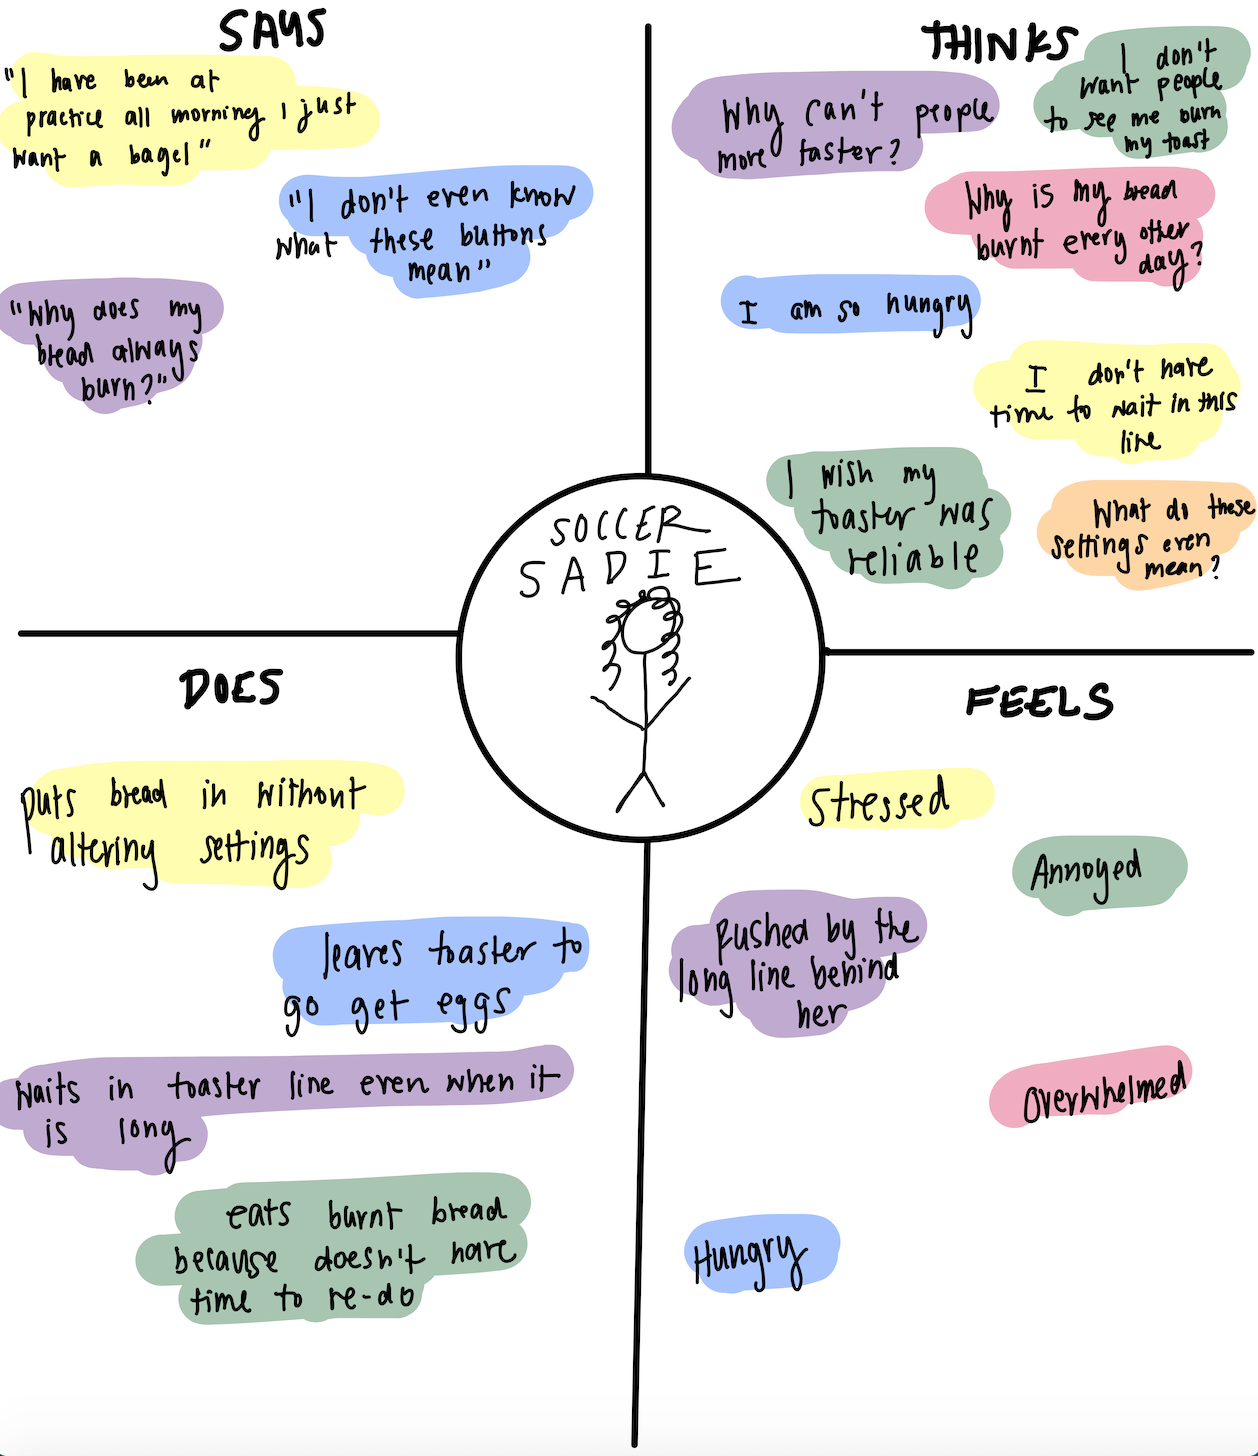 SAYS
"I have been at
practice all morning I just
want a bagel"
"I don't even know
what these buttons
mean"
"Why does my
bread always
burn?"
THINKS
Why can't people
move faster?
I don't
want people
to see me burn
my toast
Why is my bread
burnt every other
day?
I am so hungry
I don't have
time to wait in this
line
I wish my
toaster was
reliable
What do these
settings even
mean?
SOCCER
SADIE
DOES
puts bread in without
altering settings
leaves toaster to
go get eggs
waits in toaster line even when it
is long
eats burnt bread
because doesn't have
time to re-do
FEELS
Stressed
Annoyed
Rushed by the
long line behind
her
Overwhelmed
Hungry